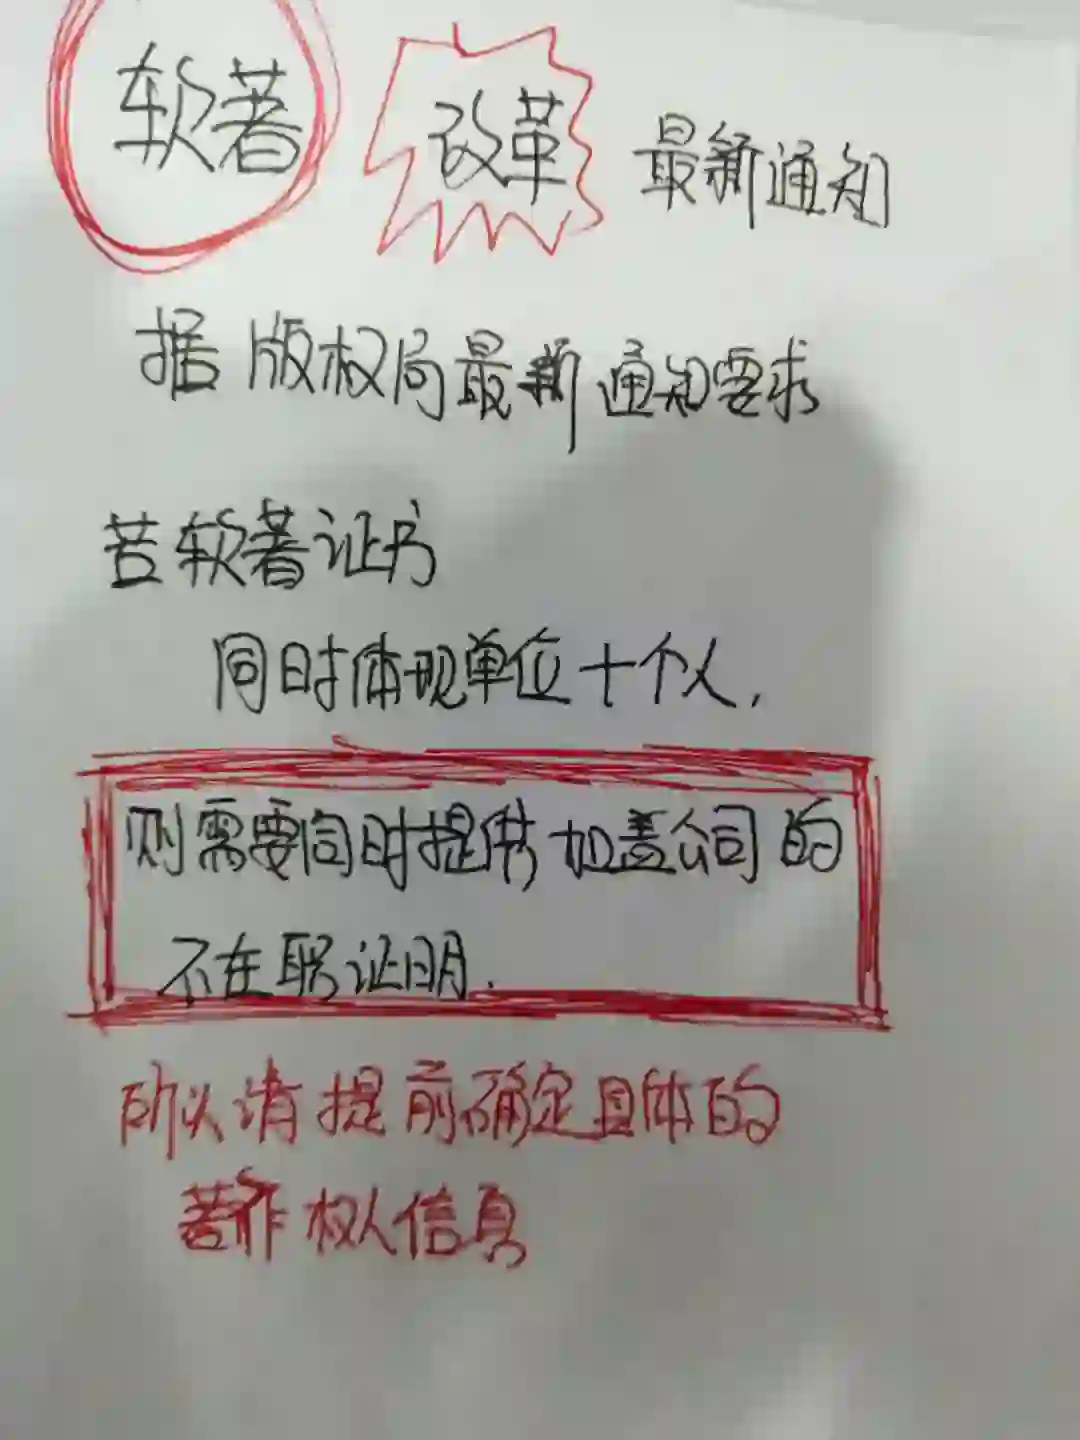 软著 改革 最新通知
据版权局最新通知要求
若软著证书
同时体现单位+个人,
则需要同时提供加盖公司的
不在职证明.
所以请提前确定具体的
著作权人信息